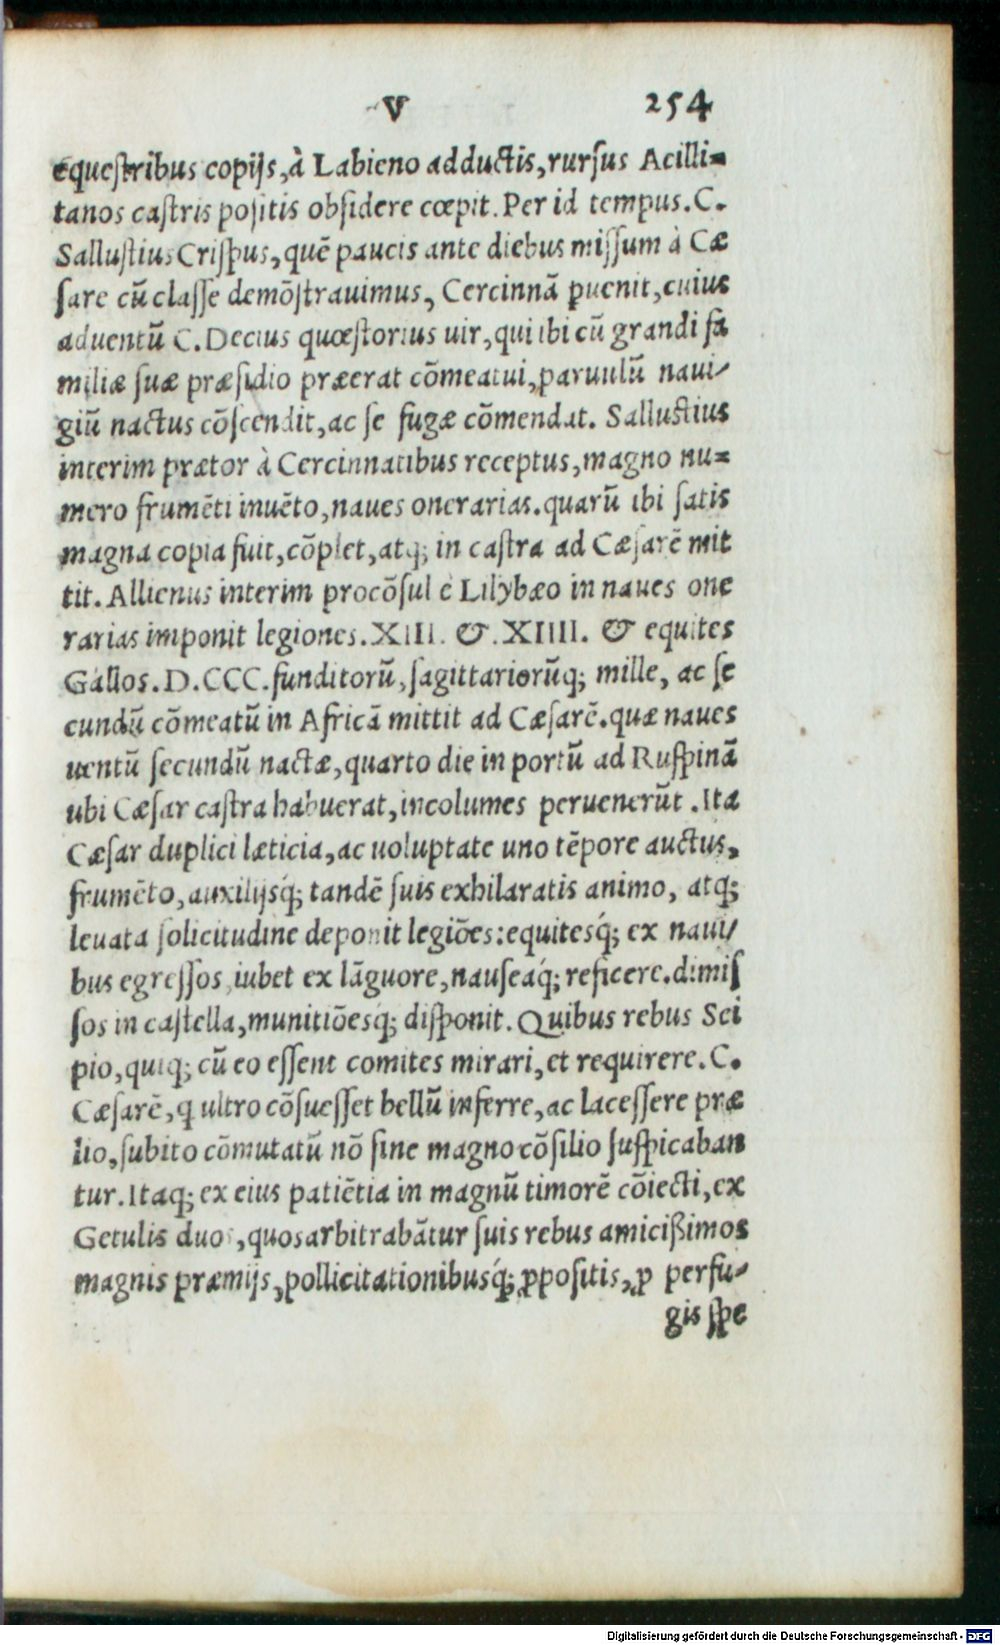 V 254
equeſtribus copijs, à Labieno adductis, rurſus Acilli=
tanos caſtris poſitis obſidere cœpit. Per id tempus. C.
Salluſtius Criſpus, quē paucis ante diebus miſſum à Cæ
ſare cū claſſe demōſtrauimus, Cercinnā ꝑuenit, cuius
aduentū C. Decius quæſtorius uir, qui ibi cū grandi fa
miliæ ſuæ præſidio præerat cōmeatui, paruulū naui⸗
giū nactus cōſcendit, ac ſe fugæ cōmendat. Salluſtius
interim prætor à Cercinnatibus receptus, magno nu=
mero frumēti inuēto, naues onerarias. quarū ibi ſatis
magna copia fuit, cōplet, atq; in caſtra ad Cæſarē mit
tit. Allienus interim procōſul è Lilybæo in naues one
rarias imponit legiones. XIII. & . XIIII. & equites
Gallos. D. CCC. funditorū, ſagittariorūq; mille, ac ſe
cundū cōmeatū in Africā mittit ad Cæſarē. quæ naues
uentū ſecundū nactæ, quarto die in portū ad Ruſpinā
ubi Cæſar caſtra habuerat, incolumes peruenerūt. Ita
Cæſar duplici læticia, ac uoluptate uno tēpore auctus,
frumēto, auxilijsq́; tandē ſuis exhilaratis animo, atq;
leuata ſolicitudine deponit legiōes: equitesq́; ex naui⸗
bus egreſſos, iubet ex lāguore, nauſeaq́; reficere. dimiſ
ſos in caſtella, munitiōesq́; diſponit. Quibus rebus Sci
pio, quiq; cū eo eſſent comites mirari, et requirere. C.
Cæſarē, q ultro cōſueſſet bellū inferre, ac laceſſere præ
lio, ſubito cōmutatū nō ſine magno cōſilio ſuſpicaban
tur. Itaq; ex eius patiētia in magnū timorē cōiecti, ex
Getulis duos, quos arbitrabātur ſuis rebus amicißimos
magnis præmijs, pollicitationibusq́; ꝓpoſitis, ꝓ perfu⸗
gis ſpe
Digitalisierung gefördert durch die Deutsche Forschungsgemeinschaft - DFG